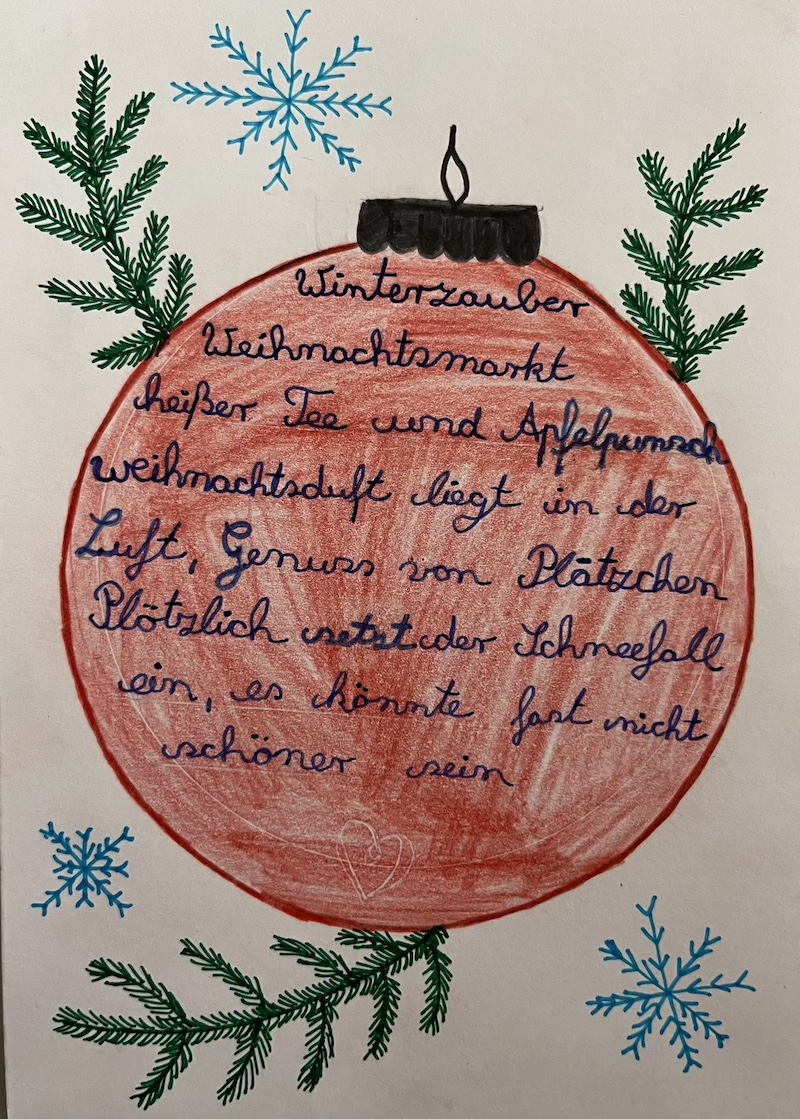 Winterzauber
Weihnachtsmarkt
heißer Tee und Apfelpunsch
weihnachtsduft liegt in der
Luft, Genuss von Plätzchen
Plötzlich setzt der Schneefall
ein, es könnte fast nicht
schöner sein